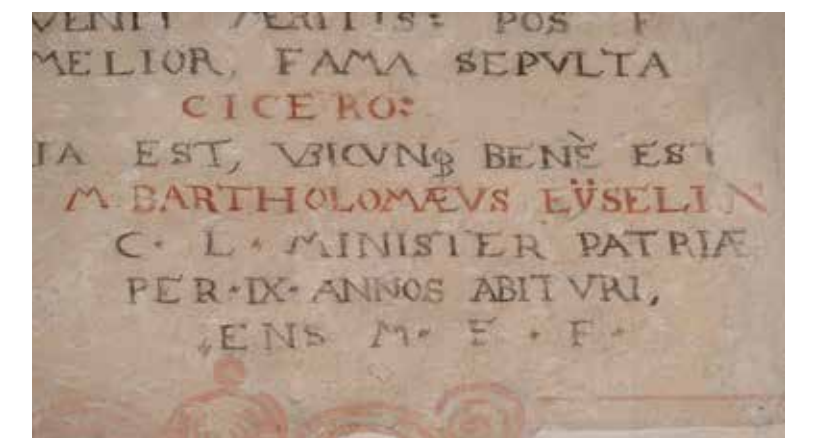 VENIT MERITIS: POS F
MELIOR, FAMA SEPVLTA
CICERO:
IA EST, VBICVNQ BENÈ EST
M. BARTHOLOMÆVS EŸSELIN
C. L. MINISTER PATRIÆ
PER·IX·ANNOS ABITVRI,
ENS M. F. F.